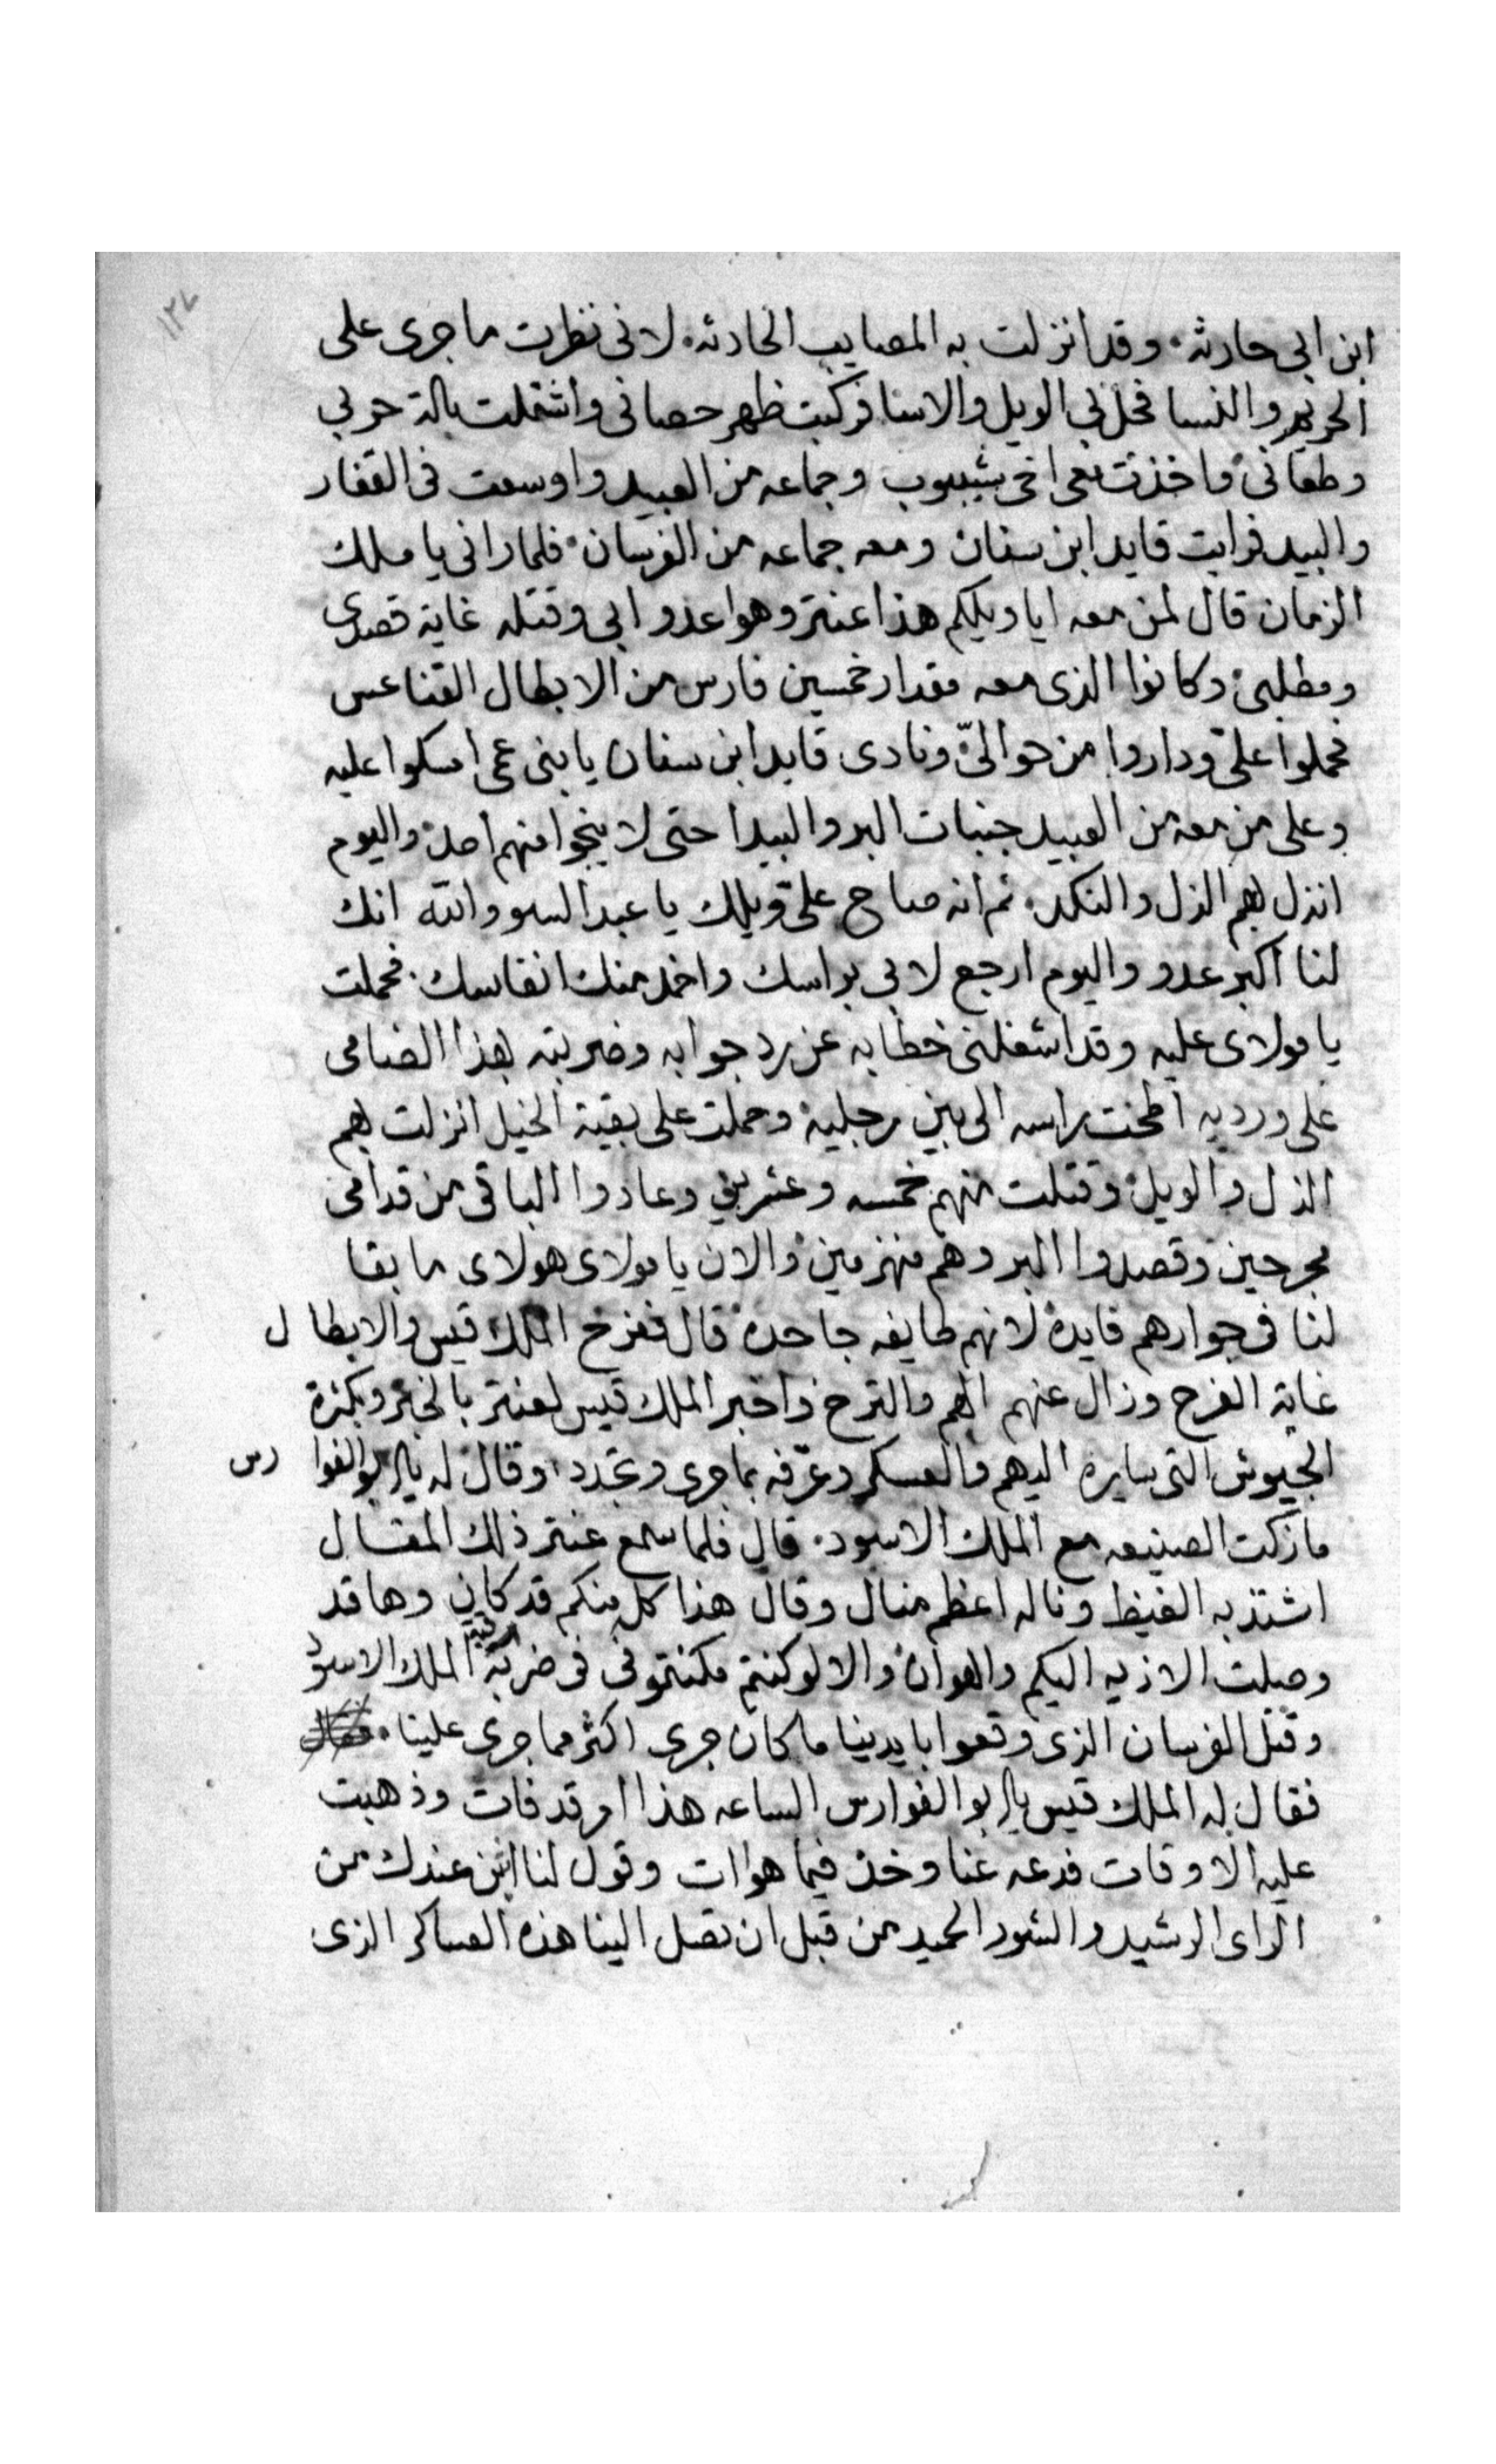 ١٢٤
ابن ابى حارثه. وقد انزلت به المصايب الحادثه. لانى نظرت ما جرى على
الحريم والنسا فحل بى الويل والاسا فركبت ظهر حصانى واشتملت بالة حربى
وطعانى واخذت معى اخى شيبوب وجماعه من العبيد واوسعت فى القفار
والبيد فرايت قايد ابن سنان ومعه جماعه من الفرسان. فلما رانى يا ملك
الزمان قال لمن معه ايا ويلكم هذا عنتر وهوا عدو ابى وقتله غاية قصدى
ومطلبى وكانوا الذى معه مقدار خمسين فارس من الابطال القناعس
فحملوا علىّ وداروا من حوالىّ ونادى قايد ابن سنان يا بنى عمى امسكوا عليه
وعلى من معه من العبيد جنبات البر والبيدا حتى لا ينجوا منهم احد واليوم
انزل بهم الذل والنكد. ثم انه صاح علىّ ويلك يا عبد السوو والله انك
لنا اكبر عدو واليوم ارجع لابى براسك واخمد منك انفاسك. فحملت
يا مولاى عليه وقد اشغلنى خطابه عن رد جوابه وضربته بهذا الضامى
على ورديه اطحت براسه الى بين رجليه وحملت على بقية الخيل انزلت بهم
الذل والويل وقتلت منهم خمسه وعشرين وعادوا الباقى من قدامى
مجرحين وقصدوا البر وهم منهزمين والان يا مولاى هولاى ما بقا
لنا فى جوارهم فايدة لانهم طايفه جاحدة قال ففرح الملك قيس والابطال
غاية الفرح وزال عنهم الهم والترح واخبر الملك قيس لعنتر بالخبر وبكثرة
الجيوش التى سايره اليهم والعسكر وعرّفه بما جرى وتجدد وقال له يا ابو الفوارس
ما زكت الصنيعه مع الملك الاسود. قال فلما سمع عنتر ذلك المقال
اشتد به الغيظ وناله اعظم منال وقال هذا كل منكم قد كان وها قد
وصلت الاذيه اليكم والهوان والا لو كنتم مكنتمونى فى ضربة رقبة الملك الاسود
وقتل الفرسان الذى وقعوا بايدينا ما كان جرى اكثر مما جرى علينا. فقال
فقال له الملك قيس يا ابو الفوارس الساعه هذا امر قد فات وذهبت
عليه الاوقات فدعه عنا وخذ فيما هوات وقول لنا ايش عندك من
الراى الرشيد والشور الحميد من قبل ان تصل الينا هذه العساكر الذى